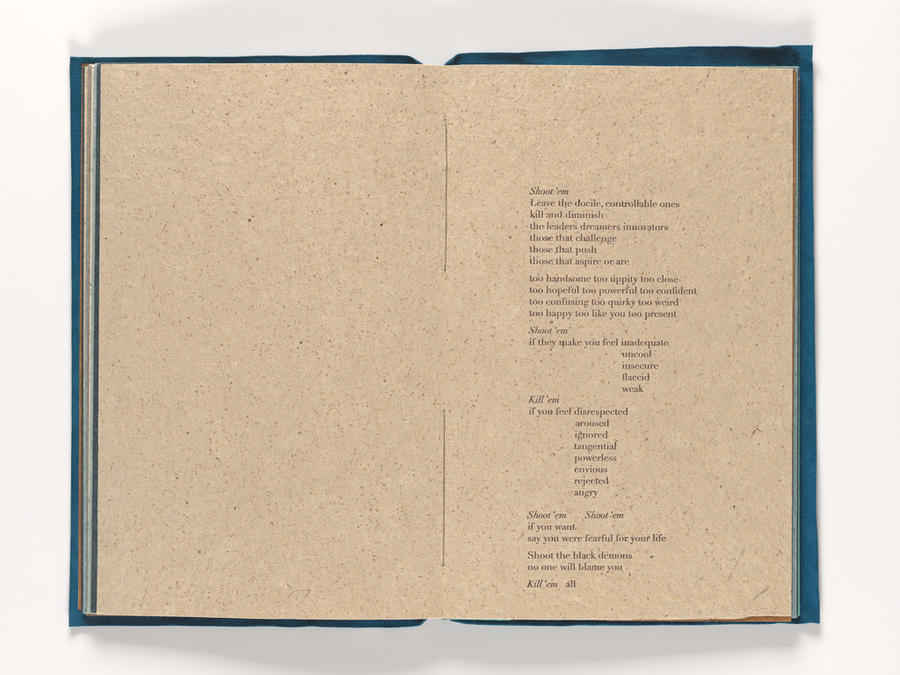 Shoot 'em
Leave the docile, controllable ones
kill and diminish
the leaders dreamers innovators
those that challenge
those that push
those that aspire or are
too handsome too uppity too close
too hopeful too powerful too confident
too confusing too quirky too weird
too happy too like you too present
Shoot 'em
if they make you feel inadequate
uncool
insecure
flaccid
weak
Kill 'em
if you feel disrespected
aroused
ignored
tangential
powerless
envious
rejected
angry
Shoot 'em Shoot 'em
if you want
say you were fearful for your life
Shoot the black demons
no one will blame you
Kill 'em all